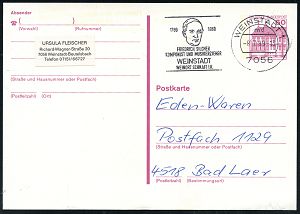 Absender
(Vorwahl)
(Rufnummer)
URSULA FLEISCHER
Richard-Wagner-Straße 30
7056 Weinstadt-Beutelsbach
Telefon 07151/66727
(Straße und Hausnummer oder Postfach)
(Postleitzahl) (Ort)
1789
1860
FRIEDRICH SILCHER
KOMPONIST UND MUSIKERZIEHER
WEINSTADT
WEINORT SCHNAIT I.R.
WEINSTADT
7056
Postkarte
Eden-Waren
Postfach 1129
(Straße und Hausnummer oder Postfach)
4518 Bad Laer
(Postleitzahl) (Bestimmungsort)